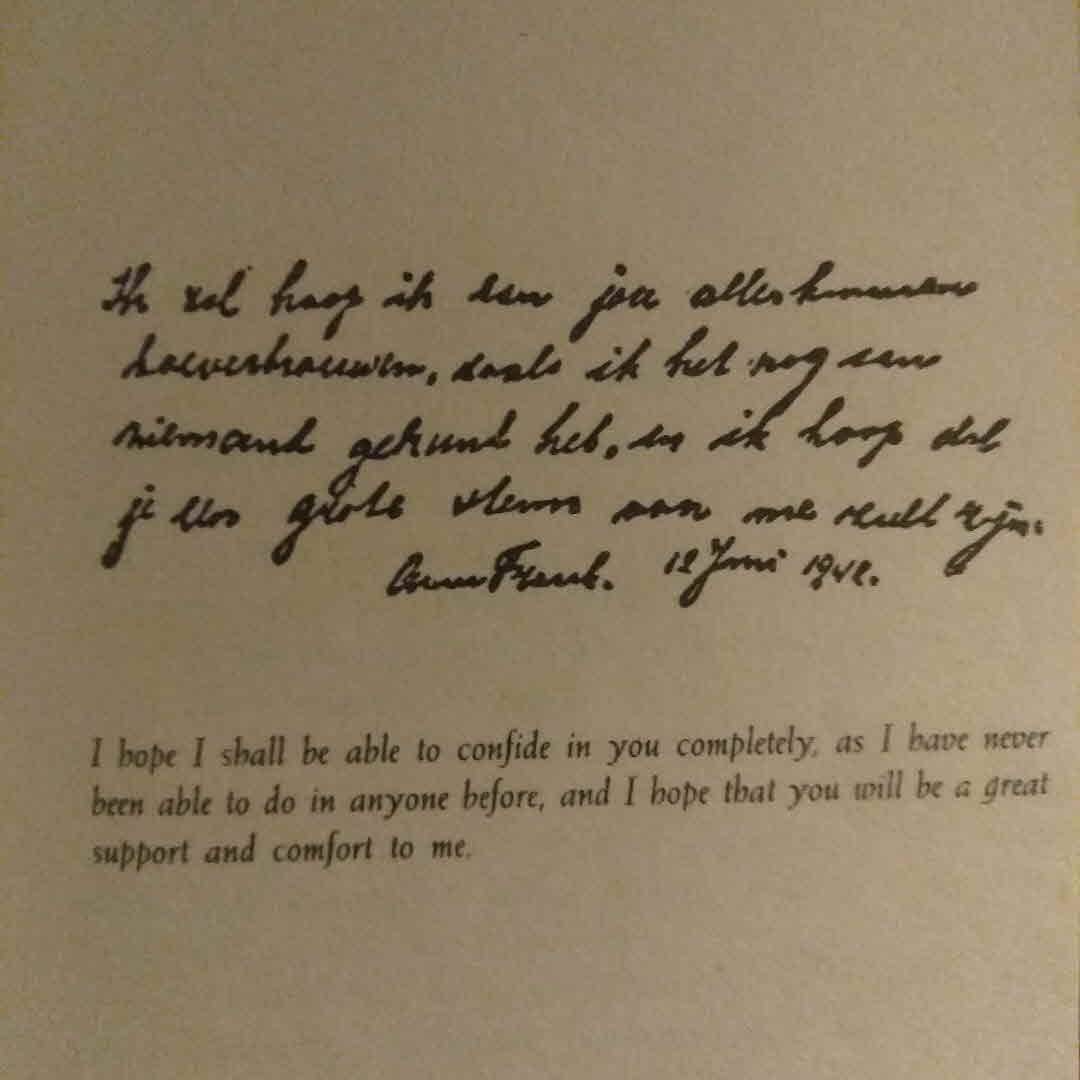 Ik zal hoop ik aan jou alles kunnen
toevertrouwen, zoals ik het nog aan
niemand gekund heb, en ik hoop dat
je een grote steun voor me zult zijn.
Anne Frank. 12 Juni 1942.
I hope I shall be able to confide in you completely, as I have never
been able to do in anyone before, and I hope that you will be a great
support and comfort to me.